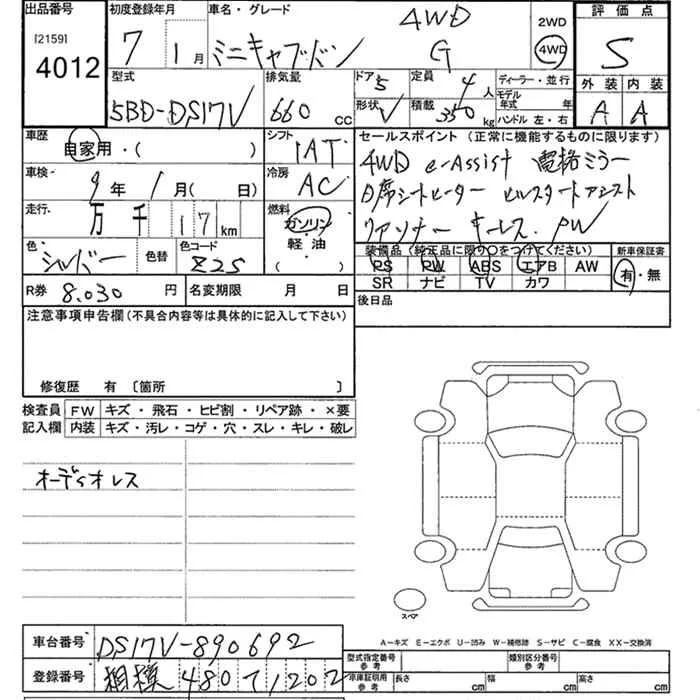 出品番号 初度登録年月 車名・グレード 評価点
[2159] 4012
7 1月 ミニキャブバン 4WD G 2WD 4WD S
外装 内装
A A
型式 排気量 ドア 5 定員 4人 ディーラー・並行
5BD-DS17V 660 CC 形状 V 積載 350kg モデル年式 年
ハンドル 左・右
車歴 自家用・( ) シフト IAT
セールスポイント (正常に機能するものに限ります)
4WD e-Assist 電格ミラー
D席シートヒーター ヒルスタートアシスト
リアソナー キーレス. PW
車検 9年 1月( 日) 冷房 AC
走行 万 千 17km 燃料 ガソリン 軽油 ( )
色 シルバー 色替 色コード Z2S
装備品 (純正品に限り○をつけてください) 新車保証書
PS PW ABS エアB AW 有・無
SR ナビ TV カワ
R券 8,030円 名変期限 月 日
後日品
注意事項申告欄(不具合内容等は具体的に記入して下さい)
修復歴 有 〔箇所 〕
検査員 FW キズ・飛石・ヒビ割・リペア跡・×要
記入欄 内装 キズ・汚レ・コゲ・穴・スレ・キレ・破レ
オーディオレス
スペア
A-キズ E-エクボ U-凹み W-補修跡 S-サビ C-腐食 XX-交換済
車台番号 DS17V-890692
登録番号 相模 480 わ 1202
型式指定番号 参考 類別区分番号 参考
車庫証明用 参考 長さ cm 幅 cm 高さ cm